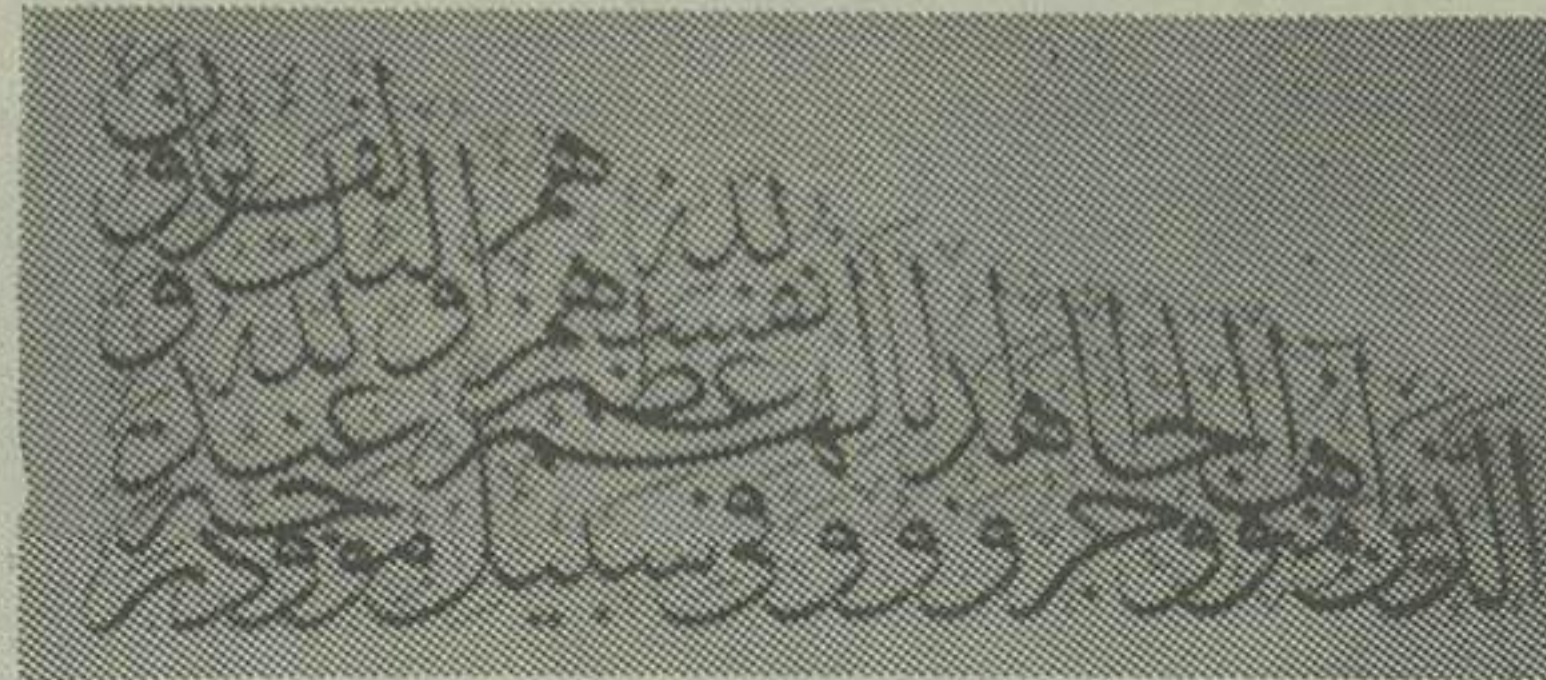 الذين امنوا وهاجروا وجاهدوا في سبيل الله باموالهم وانفسهم اعظم درجة عند الله واولئك هم الفائزون